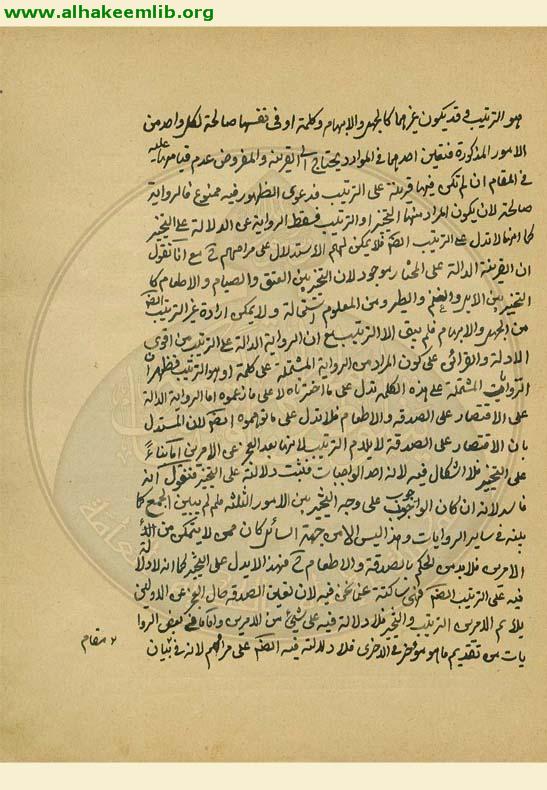 www.alhakeemlib.org
هو الترتيب وقد يكون غيرهما كالجهل والابهام وكلمة او في نفسها صالحة لكل واحد من
الامور المذكورة فتعين احدهما في الموارد يحتاج الى القرينة والمفروض عدم قيامها عليه
في المقام ان لم تكن فيها قرينة على الترتيب فدعوى الظهور فيه ممنوع فالرواية
صالحة لان يكون المراد منها التخيير او الترتيب فسقط الرواية عن الدلالة على التخيير
كما انها لا تدل على الترتيب ايضا فلا يمكن لهم الاستدلال على مرامهم مع انا نقول
ان القرينة الدالة على المختار موجود لان التخيير بين العتق والصيام والاطعام كا
لتخيير بين الابل والغنم والطير ومن المعلوم استحالة ولا يمكن ارادة غير الترتيب ايضا
من الجهل والابهام فلم يبق الا الترتيب مع ان الرواية الدالة على الترتيب من اقوى
الادلة والقرائن على كون المراد من الرواية المشتملة على كلمة او هو الترتيب فظهر ان
الروايات المشتملة على هذه الكلمة تدل على ما اخترناه لا على ما زعموه اما الرواية الدالة
على الاقتصار على الصدقة والاطعام فلا تدل على ما توهموه ايضا لان المستدل
بان الاقتصار على الصدقة لا يلايم الترتيب لانها بعد العجز عن الامرين اما بناء
على التخيير فلا اشكال فيه لانه احد الواجبات فتثبت دلالته على التخيير فنقول انه
فاسد لانه ان كان الوجوب على وجه التخيير بين الامور الثلثة فلم لم يبين الجميع كما
بينه في ساير الروايات وهذا ليس الا من جهة السائل كان ممن لا يتمكن من
الامرين فلا بد من الحكم بالصدقة والاطعام فهذا لا يدل على التخيير كما انه لا دلالة
فيه على الترتيب ايضا فهي ساكتة عن نحن فيه لان تعين الصدقة حال العجز عن الاولين
يلايم الامرين الترتيب والتخيير فلا دلالة فيه على شيئ من الامرين واما في بعض الروا
يات من تقديم ما هو مؤخر في الاخرى فلا دلالة فيه ايضا على مرامهم لانه في بيان
مقام